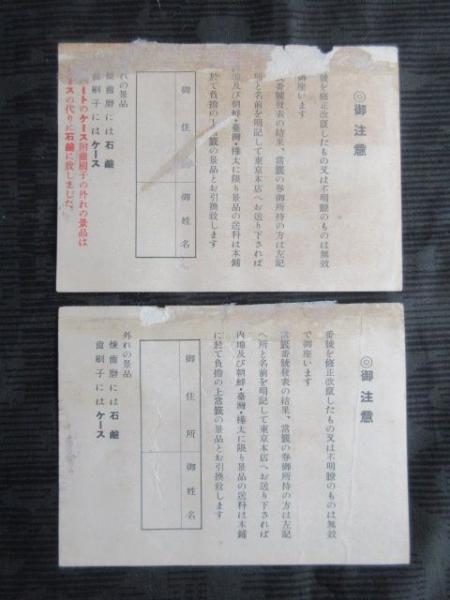 ◎御注意
番號を修正改竄したもの又は不明瞭のものは無效
御座います
籤番號發表の結果、當籤の券御所持の方は左記
所と名前を明記して東京本店へお送り下されば
地及び朝鮮・臺灣・樺太に限り景品の送料は本鋪
於て負擔の上當籤の景品とお引換致します
御住
御姓名
れの景品
煉齒磨には石鹼
齒刷子にはケース
ートのケース附齒刷子の外れの景品は
ースの代りに石鹼に致しました。
◎御注意
番號を修正改竄したもの又は不明瞭のものは無效
で御座います
當籤番號發表の結果、當籤の券御所持の方は左記
へ所と名前を明記して東京本店へお送り下されば
內地及び朝鮮・臺灣・樺太に限り景品の送料は本鋪
に於て負擔の上當籤の景品とお引換致します
御住所
御姓名
外れの景品
煉齒磨には石鹼
齒刷子にはケース